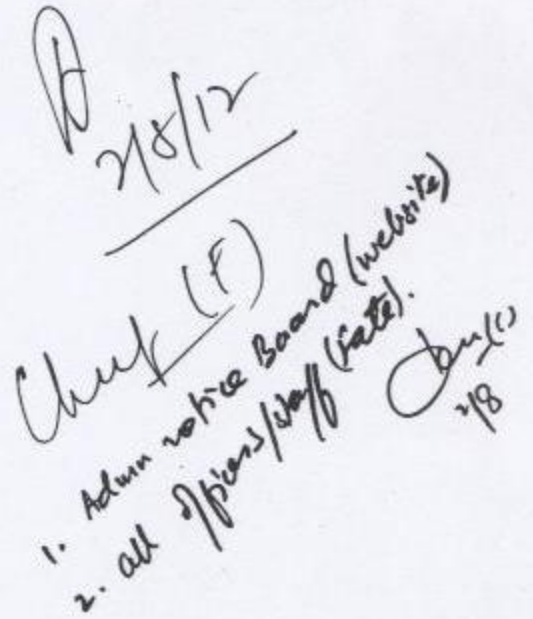 2/8/12
(F)
1. Admn notice Board (website)
2. all officers/staff
2/8